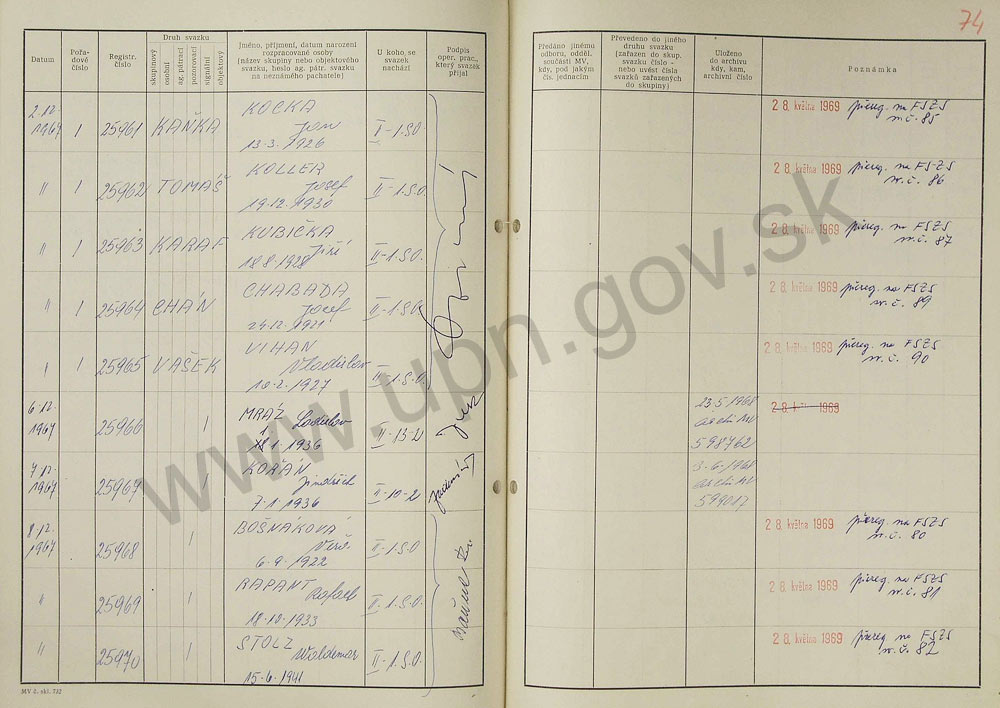 74
Datum
Pořa-
dové
číslo
Registr.
číslo
Druh svazku
skupinový
osobní
ag. pátrací
pozorovací
signální
objektový
Jméno, příjmení, datum narození
rozpracované osoby
(název skupiny nebo objektového
svazku, heslo ag. pátr. svazku
na neznámého pachatele)
U koho, se
svazek
nachází
Podpis
oper. prac.,
který svazek
přijal
Předáno jinému
odboru, odděl.
součásti MV,
kdy, pod jakým
čís. jednacím
Převedeno do jiného
druhu svazku
(zařazen do skup.
svazku číslo -
nebo uvést čísla
svazků zařazených
do skupiny)
Uloženo
do archivu
kdy, kam,
archivní číslo
Poznámka
2.12. 1967 1 25961 KAŇKA KOCKA Jan 13.3.1926 II-1.S.O. 28. května 1969 přereg. na FSZS m.č. 85
" 1 25962 TOMÁŠ KOLLER Josef 19.12.1930 II-1.S.O. 28. května 1969 přereg. na FSZS m.č. 86
" 1 25963 KARAF KUBIČKA Jiří 18.8.1928 II-1.S.O. 28. května 1969 přereg. na FSZS m.č. 87
" 1 25964 CHÁN CHABADA Josef 24.12.1921 II-1.S.O. 28. května 1969 přereg. na FSZS m.č. 89
" 1 25965 VAŠEK VIHAN Vladislav 10.2.1927 II-1.S.O. 28. května 1969 přereg. na FSZS m.č. 90
6.12. 1967 25966 1 MRÁZ Ladislav 1936 II-13-2 23.5.1968 archiv MV 598762 28. května 1969
7.12. 1967 25967 1 KOŘÁN Jindřich 7.1.1936 II-10-2 3.6.1968 archiv MV 599017
8.12. 1967 25968 1 BOŠŇÁKOVÁ Věra 6.9.1922 II-1.S.O. 28. května 1969 přereg. na FSZS m.č. 80
" 25969 1 RAPANT Rafael 18.10.1933 II-1.S.O. 28. května 1969 přereg. na FSZS m.č. 81
" 25970 1 STOLZ Waldemar 15.6.1941 II-1.S.O. 28. května 1969 přereg. na FSZS m.č. 82
MV č. skl. 732
www.upn.gov.sk